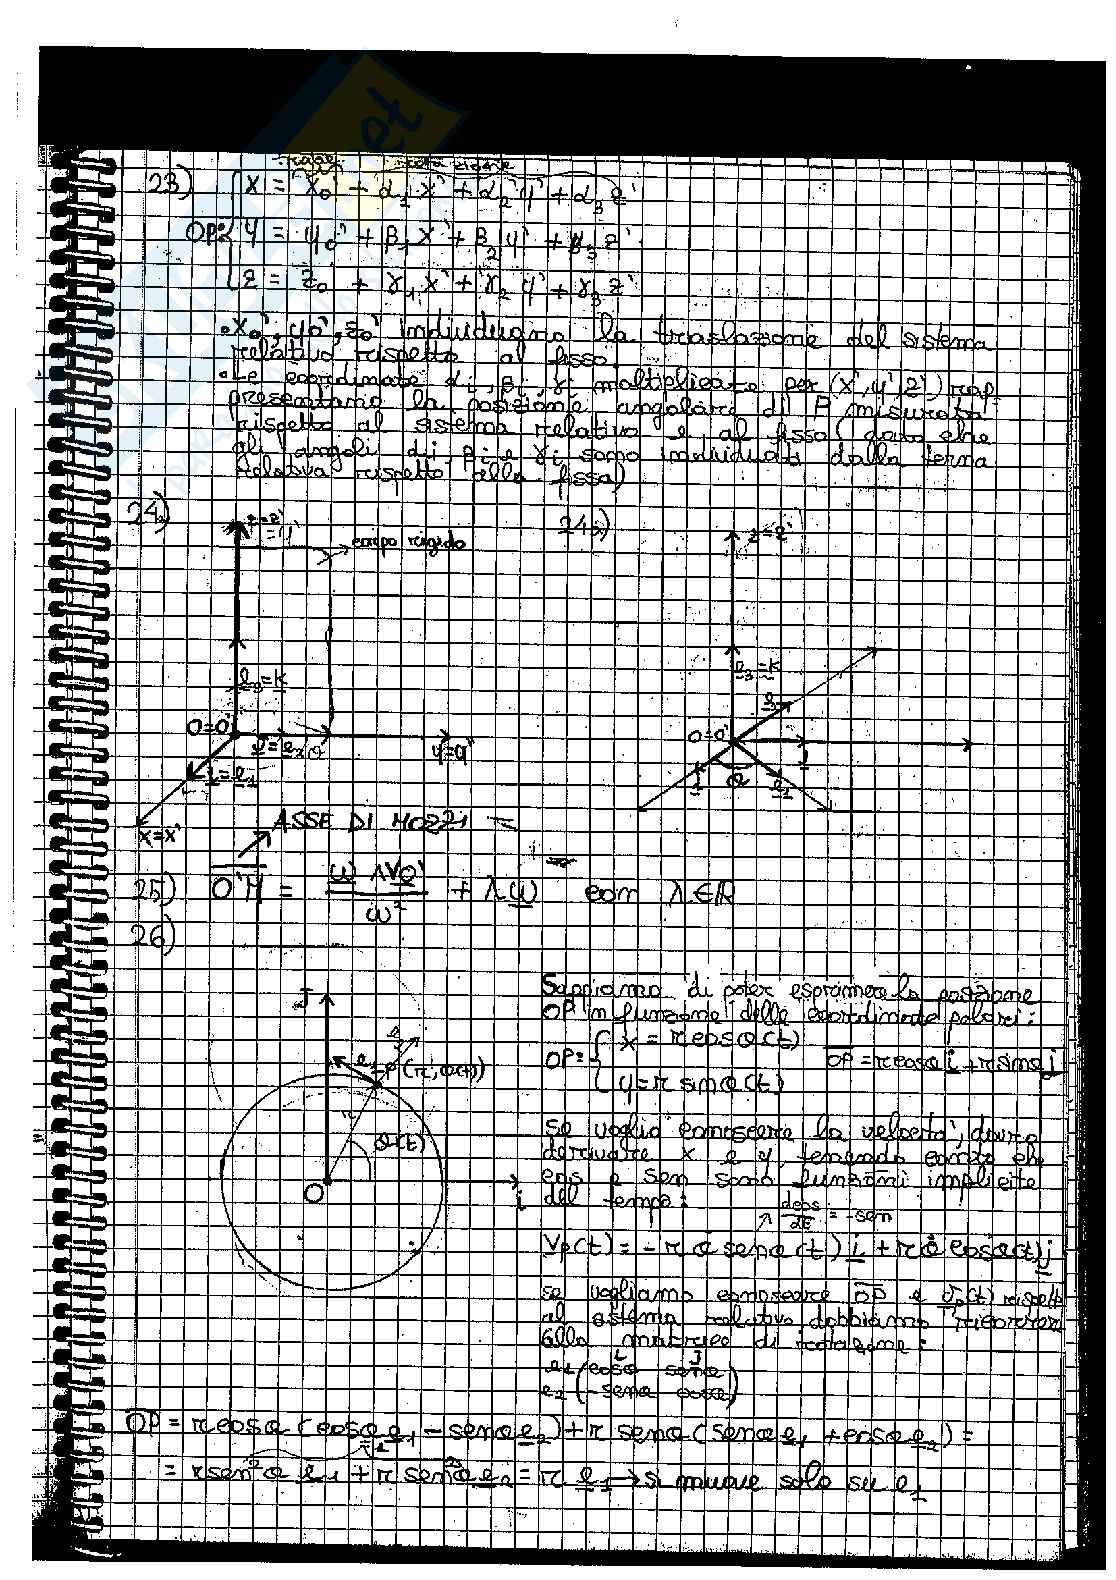 23) x = x0' + α1 x' + α2 y' + α3 z'
OP: { y = y0' + β1 x' + β2 y' + β3 z'
z = z0' + γ1 x' + γ2 y' + γ3 z'
• x0', y0', z0' individuano la traslazione del sistema
relativo rispetto al fisso.
• Le coordinate αi, βi, γi moltiplicate per (x', y', z') rap-
presentano la posizione angolare di P misurata
rispetto al sistema relativo e al fisso (dato che
gli angoli αi, βi e γi sono individuati dalla terna
relativa rispetto alla fissa)
24)
z=z'
corpo rigido
e3=k
O=O'
j=e2
θ
y=y'
i=e1
x=x'
24b)
z=z'
e3=k
e2
O=O'
j
i
θ
e1
ASSE DI MOZZI
25) O'H = ω ∧ VO' / ω² + λω con λ∈R
26)
J
e2
e1
P (r, θ(t))
r
θ(t)
O
i
Sappiamo di poter esprimere la posizione
OP in funzione delle coordinate polari:
OP: { x = r cosθ(t)
y = r sinθ(t)
OP = r cosθ i + r sinθ j
Se voglio conoscere la velocità, dovrò
derivare x e y, tenendo conto che
cos e sen sono funzioni implicite
del tempo:
dcos/dt = -sen
Vp(t) = - r θ̇ senθ(t) i + r θ̇ cosθ(t) j
se vogliamo conoscere OP e vp(t) rispetto
al sistema relativo dobbiamo ricorrere
alla matrice di rotazione:
i j
e1 ( cosθ senθ
e2 -senθ cosθ )
OP = r cosθ (cosθ e1 - senθ e2) + r senθ (senθ e1 + cosθ e2) =
= r sen²θ e1 + r senθ e2 = r e1 → si muove solo su e1